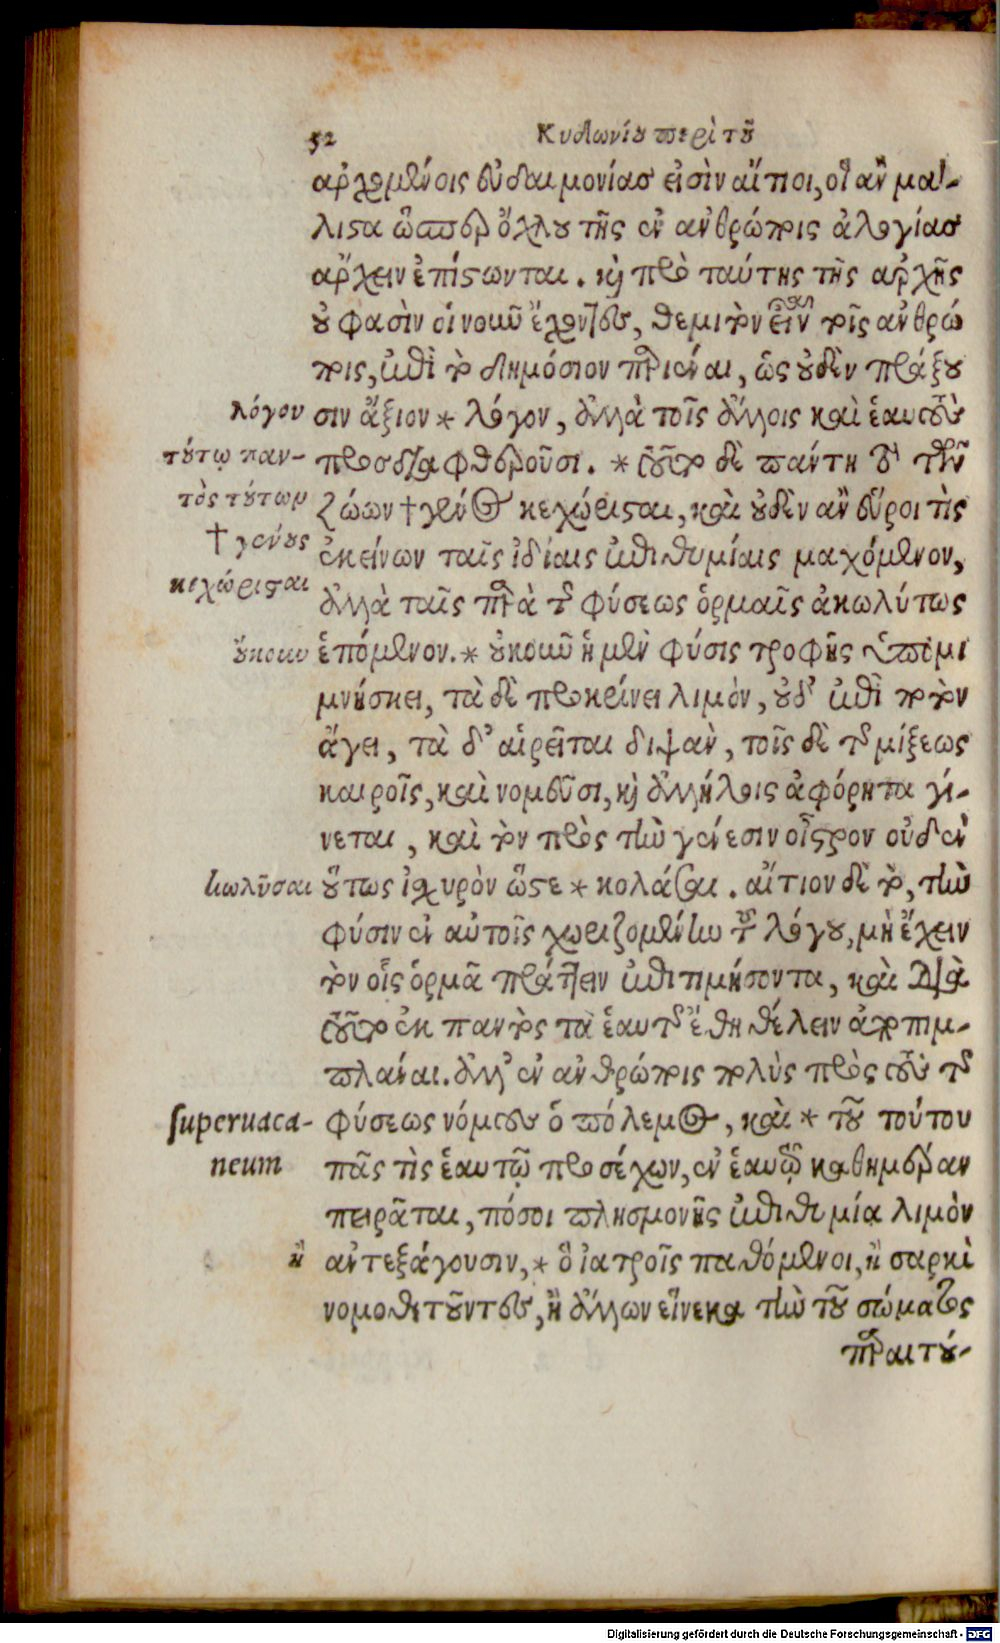 52 Κυδωνίου περὶ τοῦ
ἀρχομένοις εὐδαιμονίας εἰσὶν αἴτιοι, οἳ ἂν μά-
λιστα ὥσπερ ὄχλου τῆς ἐν ἀνθρώποις ἀλογίας
ἄρχειν ἐπίστωνται. καὶ πρὸ ταύτης τῆς ἀρχῆς
οὔ φασὶν οἱ νοῦν ἔχοντες, θεμιτὸν εἶναι τοῖς ἀνθρώ
ποις, ἐπὶ τὸ δημόσιον παριέναι, ὡς οὐδὲν πράξου
λόγον σιν ἄξιον * λόγον, ἀλλὰ τοῖς ἄλλοις καὶ ἑαυτοὺς
τούτῳ παν- προσδιαφθεροῦσι. * τοῦτο δὲ πάντη τὸ τῶν
τὸς τούτων ζώων † γένος κεχώρισται, καὶ οὐδὲν ἂν εὕροι τὶς
† γένους ἐκείνων ταῖς ἰδίαις ἐπιθυμίαις μαχόμενον,
κεχώρισται ἀλλὰ ταῖς παρὰ τῆς φύσεως ὁρμαῖς ἀκωλύτως
οὔκουν ἑπόμενον. * οὐκοῦν ἡ μὲν φύσις τροφῆς ὑπομι
μνήσκει, τὰ δὲ προκρίνει λιμὸν, οὐδ' ἐπὶ ποτὸν
ἄγει, τὰ δ' αἱρεῖται διψᾶν, τοῖς δὲ τῆς μίξεως
καιροῖς, καὶ νομεῦσι, καὶ ἀλλήλοις ἀφόρητα γί-
νεται, καὶ τὸν πρὸς τὴν γένεσιν οἶστρον οὐδὲν
κωλῦσαι οὕτως ἰσχυρὸν ὥστε * κολάσαι. αἴτιον δὲ τὸ, τὴν
φύσιν ἐν αὐτοῖς χωριζομένην τοῦ λόγου, μὴ ἔχειν
τὸν οἷς ὁρμᾶ πράττειν ἐπιτιμήσοντα, καὶ διὰ
τοῦτο ἐκ παντὸς τὰ ἑαυτῆς ἔθη θέλειν ἀποπιμ-
πλάναι. ἀλλ' ἐν ἀνθρώποις πολὺς πρὸς τοὺς τῆς
superuaca- φύσεως νόμους ὁ πόλεμος, καὶ * τοῦ τούτου
neum πᾶς τὶς ἑαυτῷ προσέχων, ἐν ἑαυτῷ καθημέραν
πειρᾶται, πόσοι πλησμονῆς ἐπιθυμία λιμὸν
ἢ ἀντεξάγουσιν, * ὃ ἰατροῖς πειθόμενοι, ἢ σαρκὶ
νομοθετοῦντες, ἢ ἄλλων εἵνεκα τὴν τοῦ σώματος
παραιτού-
Digitalisierung gefördert durch die Deutsche Forschungsgemeinschaft - DFG